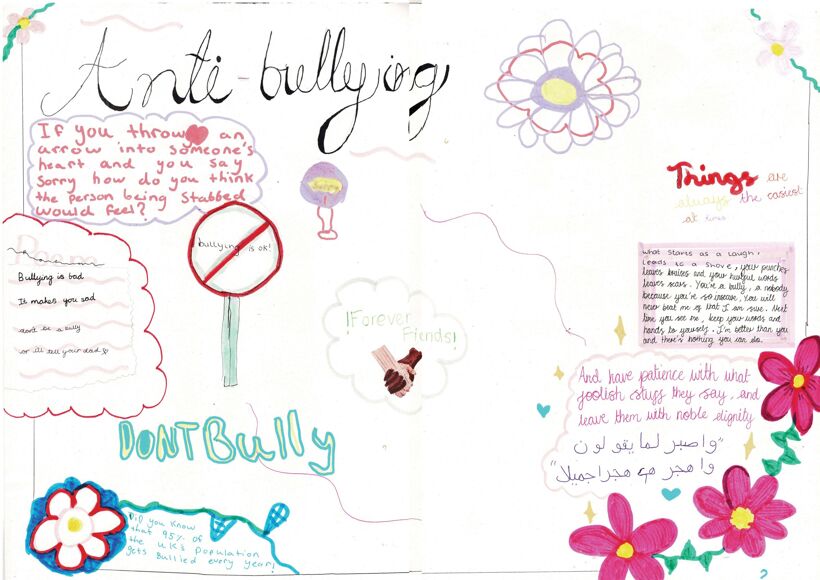 Anti-bullying
If you throw an
arrow into someone's
heart and you say
sorry how do you think
the person being stabbed
would feel?
Sorry
bullying is ok!
Poem
Bullying is bad
It makes you sad
dont be a bully
or ill tell your dad
!Forever
Fiends!
DONT Bully
Did you know
that 95% of
the UK's population
gets bullied every year!
Things are
always the easiest
at
What starts as a laugh,
leads to a shove, your punches
leaves bruises and your hurtful words
leaves scars. You're a bully, a nobody
because you're so insecure. You will
never beat me of that I am sure. Next
time you see me, keep your words and
hands to yourself. I'm better than you
and there's nothing you can do.
And have patience with what
foolish stuff they say, and
leave them with noble dignity
"واصبر لما يقولون
واهجر هم هجراجميلا"